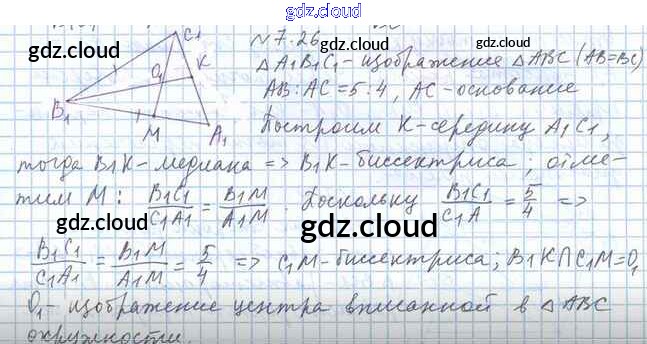 gdz.cloud
C1
№7.26
gdz.cloud
gdz.cloud
ΔA1B1C1 - изображение ΔABC (AB=BC)
O1
K
AB : AC = 5:4, AC - основание
B1
M
A1
Построим K - середину A1C1,
gdz.cloud
gdz.cloud
тогда B1K - медиана => B1K - биссектриса; отме-
тим M: B1C1/C1A1 = B1M/A1M. Поскольку B1C1/C1A = 5/4 =>
gdz.cloud
gdz.cloud
B1C1/C1A1 = B1M/A1M = 5/4 => C1M - биссектриса; B1K∩C1M=O1
gdz.cloud
gdz.cloud
O1 - изображение центра вписанной в ΔABC
окружности.